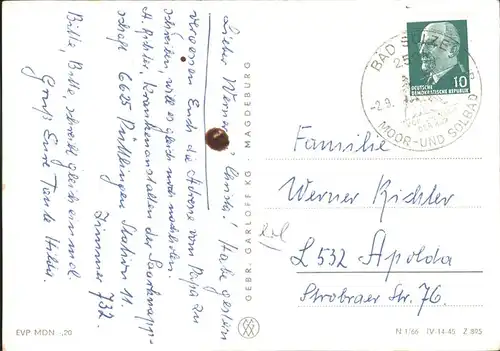 Lieber Werner, Christa! Habe gestern
vergessen Euch die Adresse vom Papa zu
schreiben, will es gleich noch nachholen.
A. Richter, Krankenanstalten der Saarknapp-
schaft 6625 Püttlingen Station 11.
Zimmer 732.
Bitte, Bitte, schreibt gleich einmal.
Gruß Eure Tante Hilde.
GEBR. GARLOFF KG · MAGDEBURG
BAD SÜLZE
25
-2.9.
MOOR- UND SOLBAD
DEUTSCHE
DEMOKRATISCHE REPUBLIK
10
Familie
Werner Richter
L 532 Apolda
Strobraer Str. 76.
EVP MDN -,20
N 1/66 IV-14-45 Z 895